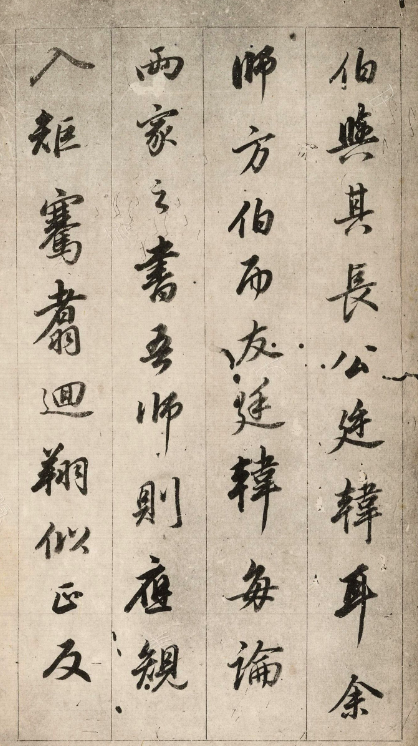 伯與其長公廷韓耳余
師方伯而友廷韓每論
兩家之書吾師則應規
入矩騫翥迴翔似正反